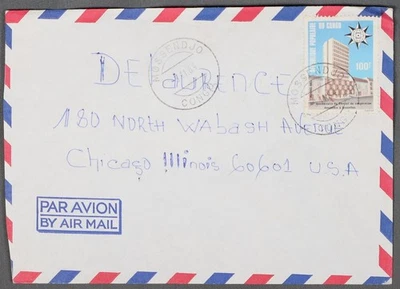 REPUBLIQUE POPULAIRE
DU CONGO
100F
MOSSENDJO
CONGO
MOSSENDJO
DE LAURENCE
180 NORTH WABASH AVENUE
Chicago Illinois 60601 U.S.A
PAR AVION
BY AIR MAIL